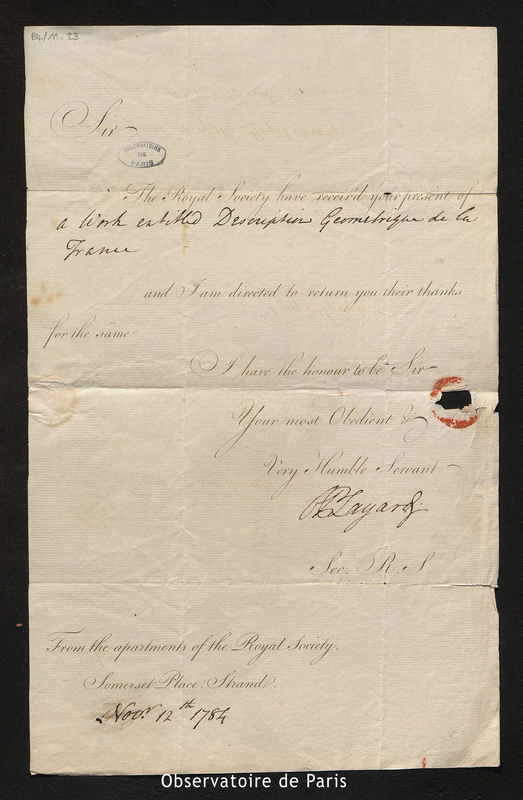 B4/M. 23
Sir
OBSERVATOIRE
DE
PARIS
The Royal Society have receiv'd your present of
a Work entitled Description Geometrique de la
France
and I am directed to return you their thanks
for the same
I have the honour to be Sir
Your most Obedient &
Very Humble Servant
Layard
Sec. R. S
From the apartments of the Royal Society.
Somerset Place, Strand.
Novr. 12th 1784
Observatoire de Paris